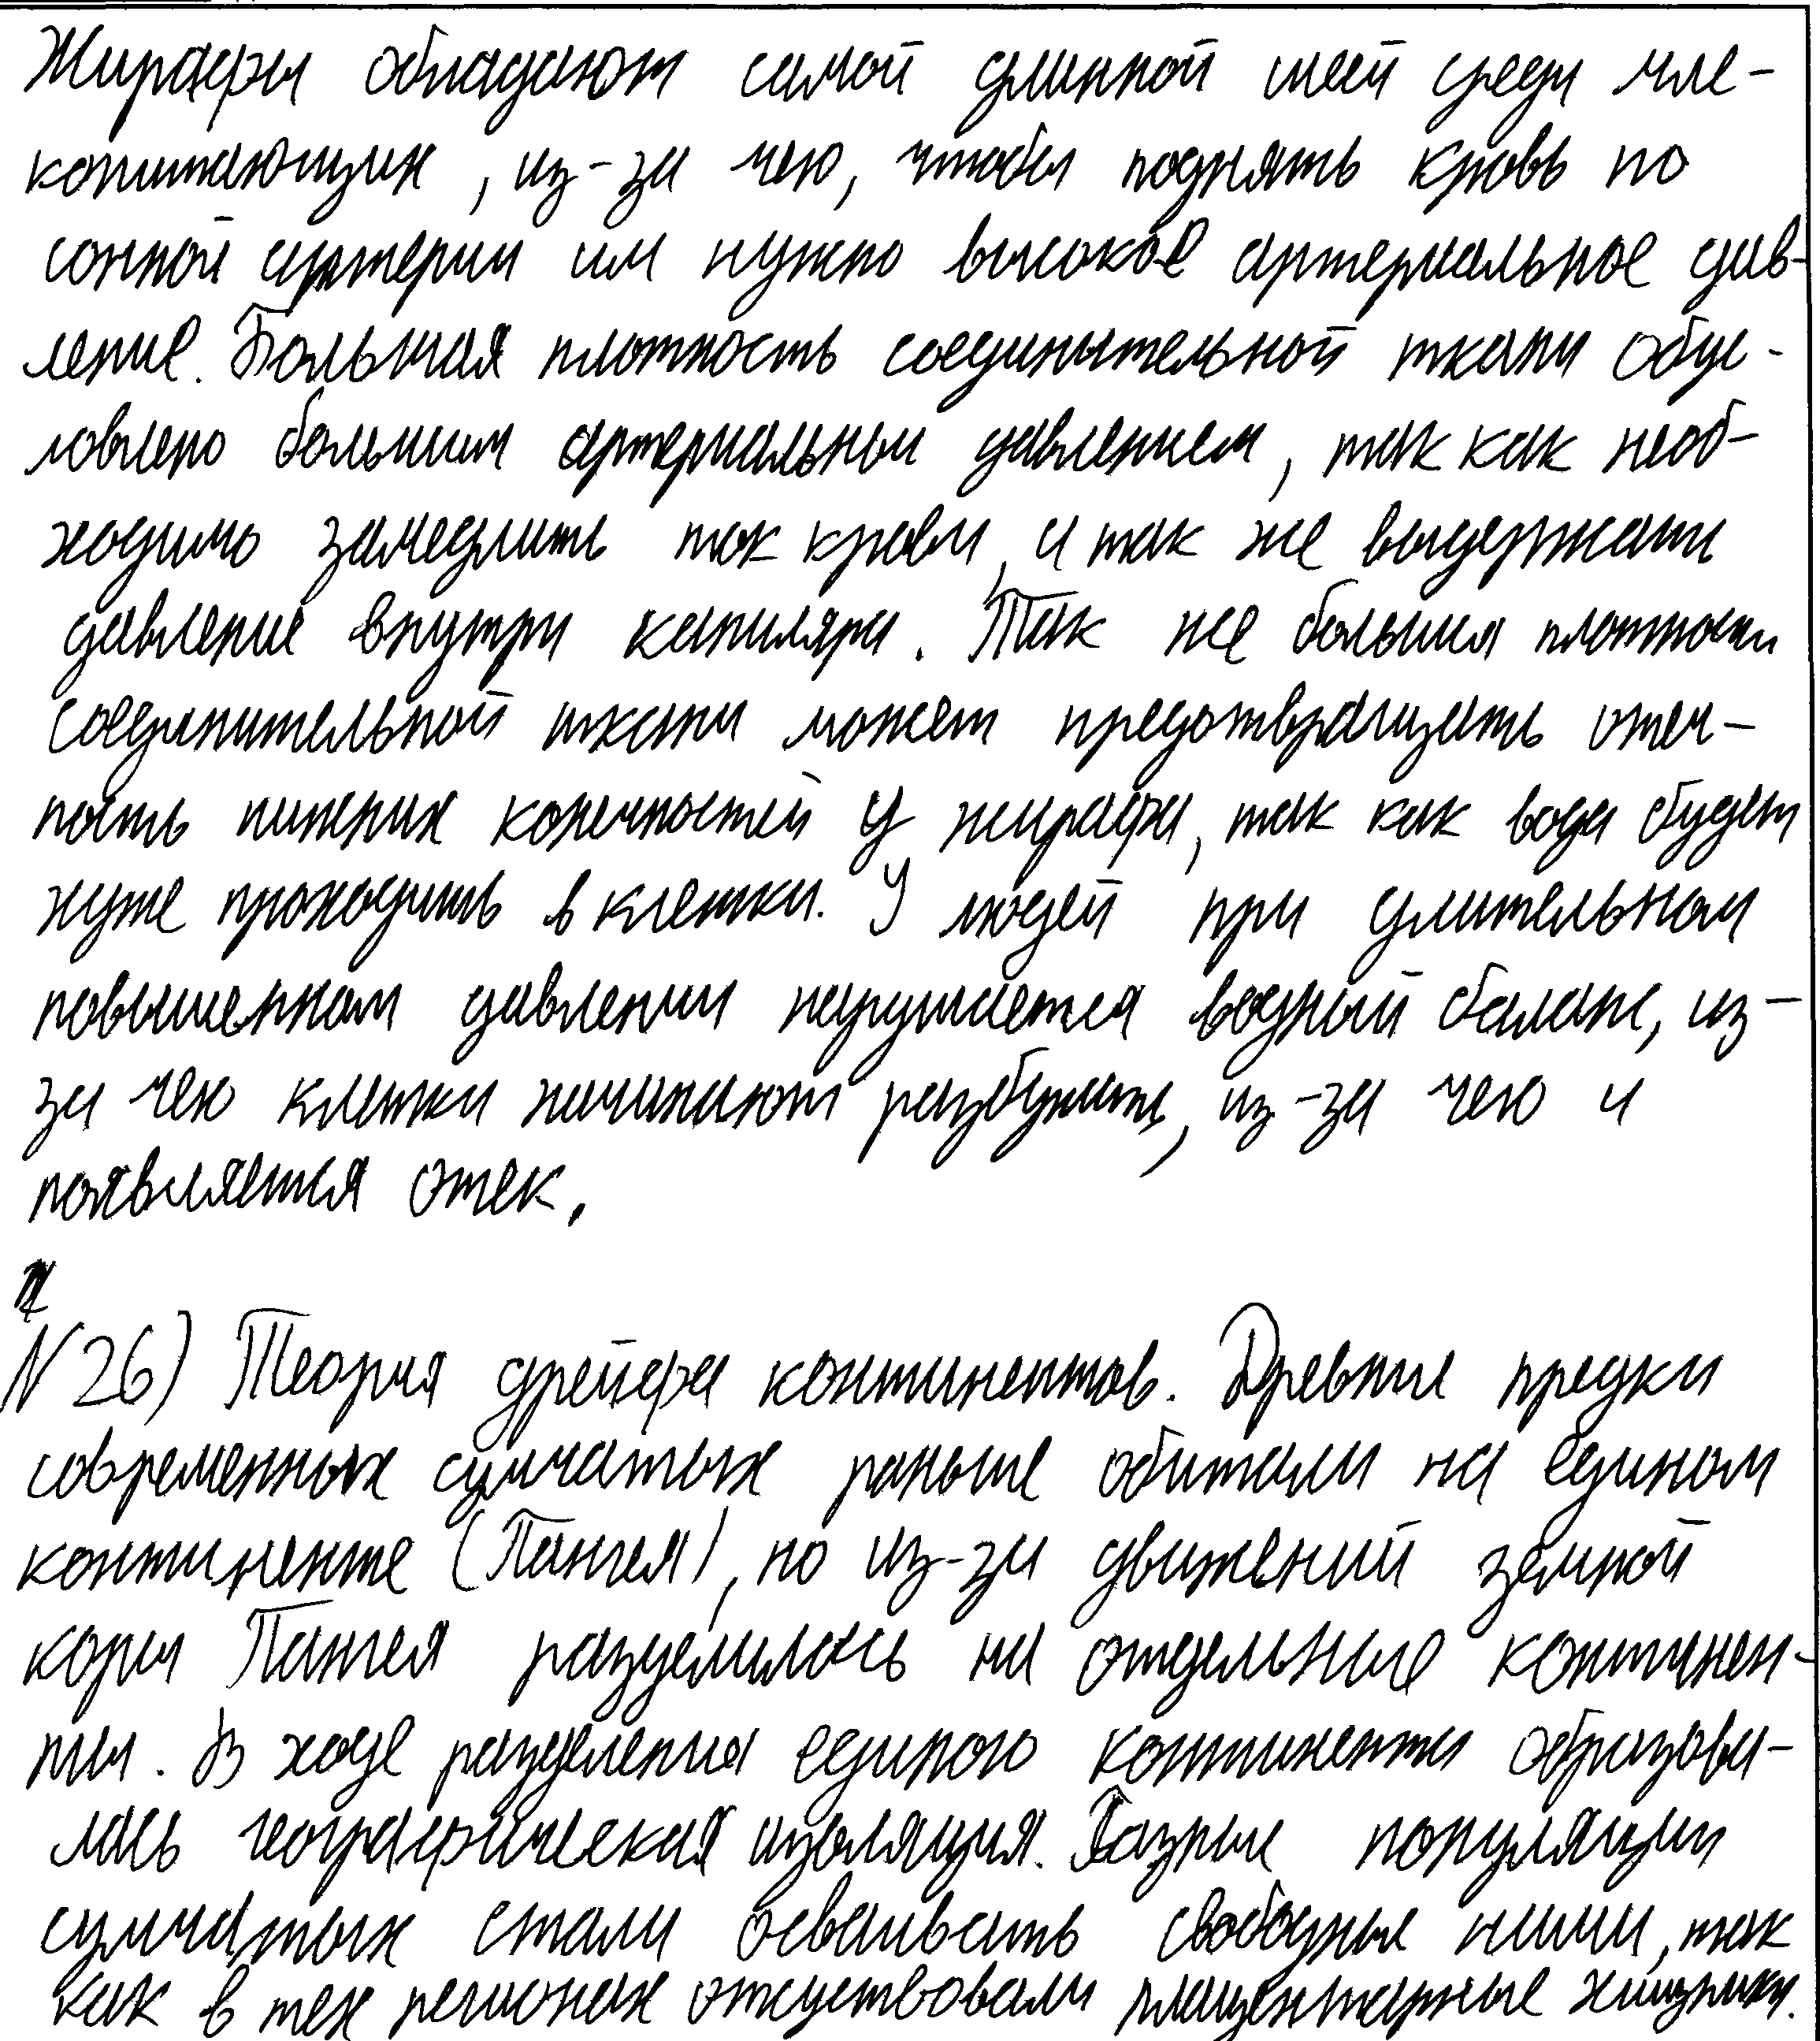 Жирафы обладают самой длинной шеей среди мле-
копитающих, из-за чего, чтобы поднять кровь по
сонной артерии им нужно высокое артериальное дав-
ление. Большая плотность соединительной ткани обус-
ловлено большим артериальным давлением, так как необ-
ходимо замедлить ток крови, и так же выдержать
давление внутри капиляра. Так же большая плотность
соединительной ткани может предотвращать отеч-
ность нижних конечностей у жирафа, так как вода будет
хуже проходить в клетки. У людей при длительном
повышенном давлении нарушается водный баланс, из-
за чего клетки начинают разбухать, из-за чего и
появляется отек.
N26) Теория дрейфа континентов. Древние предки
современных сумчатых раньше обитали на едином
континенте (Пангея), но из-за движений земной
коры Пангея разделилась на отдельные континен-
ты. В ходе разделения единого континента образова-
лась географическая изоляция. Разные популяции
сумчатых стали осваивать свободные ниши, так
как в тех регионах отсуствовали плацентарные хищники.